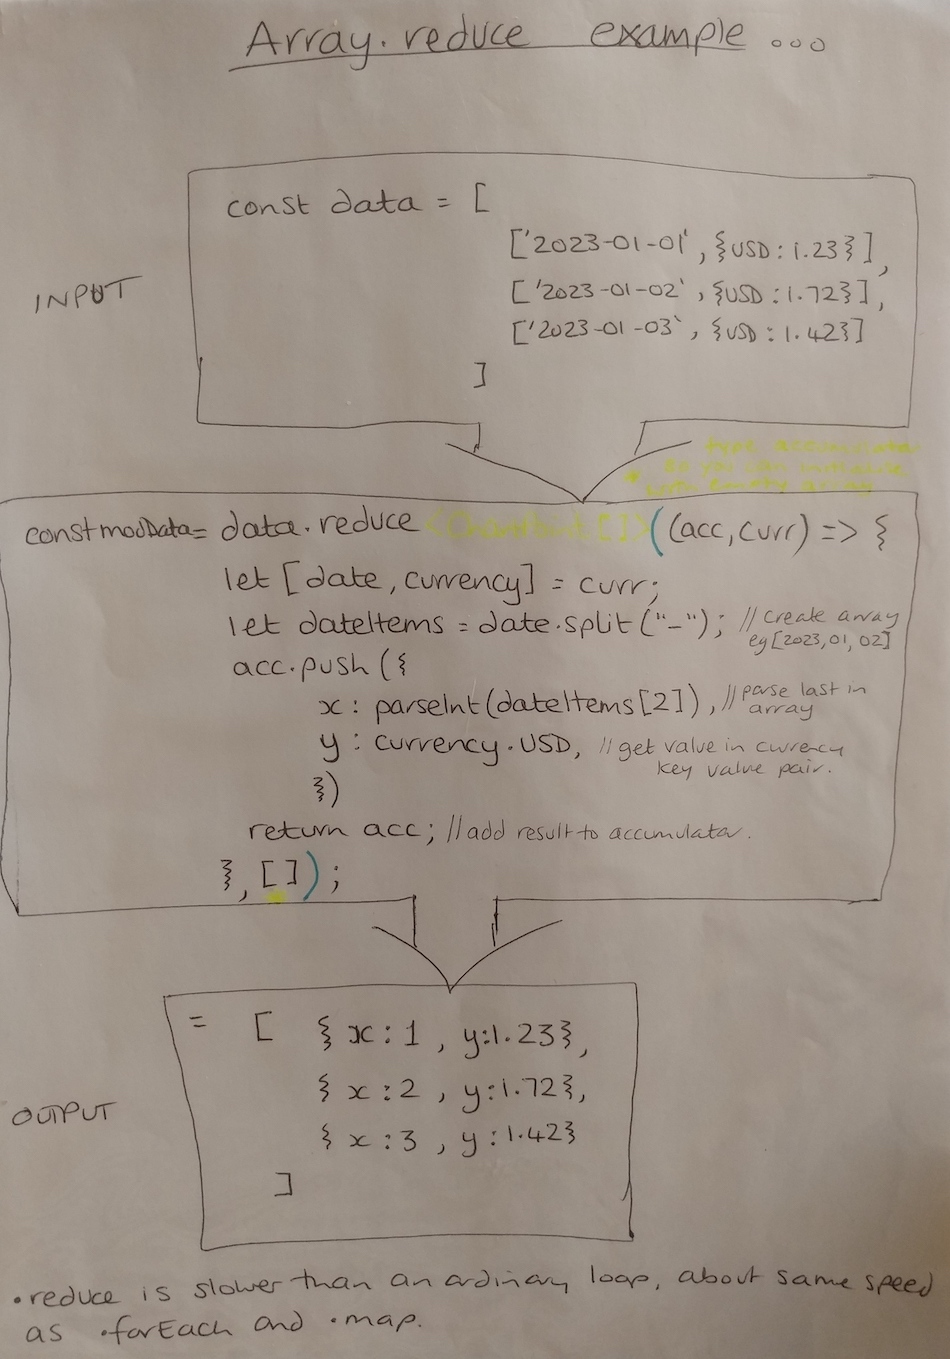 Array.reduce example ...
INPUT
const data = [
['2023-01-01', {USD: 1.23}],
['2023-01-02', {USD: 1.72}],
['2023-01-03`, {USD: 1.42}]
]
* type accumulator
so you can initialise
with empty array
const modData = data.reduce <ChartPoint[]>((acc, curr) => {
let [date, currency] = curr;
let dateItems = date.split("-"); // create array
eg [2023, 01, 02]
acc.push({
x: parseInt(dateItems[2]), // parse last in
array
y: currency.USD, // get value in currency
key value pair.
})
return acc; // add result to accumulator.
}, []);
OUTPUT
= [ { x: 1, y: 1.23},
{ x: 2, y: 1.72},
{ x: 3, y: 1.42}
]
.reduce is slower than an ordinary loop, about same speed
as .forEach and .map.